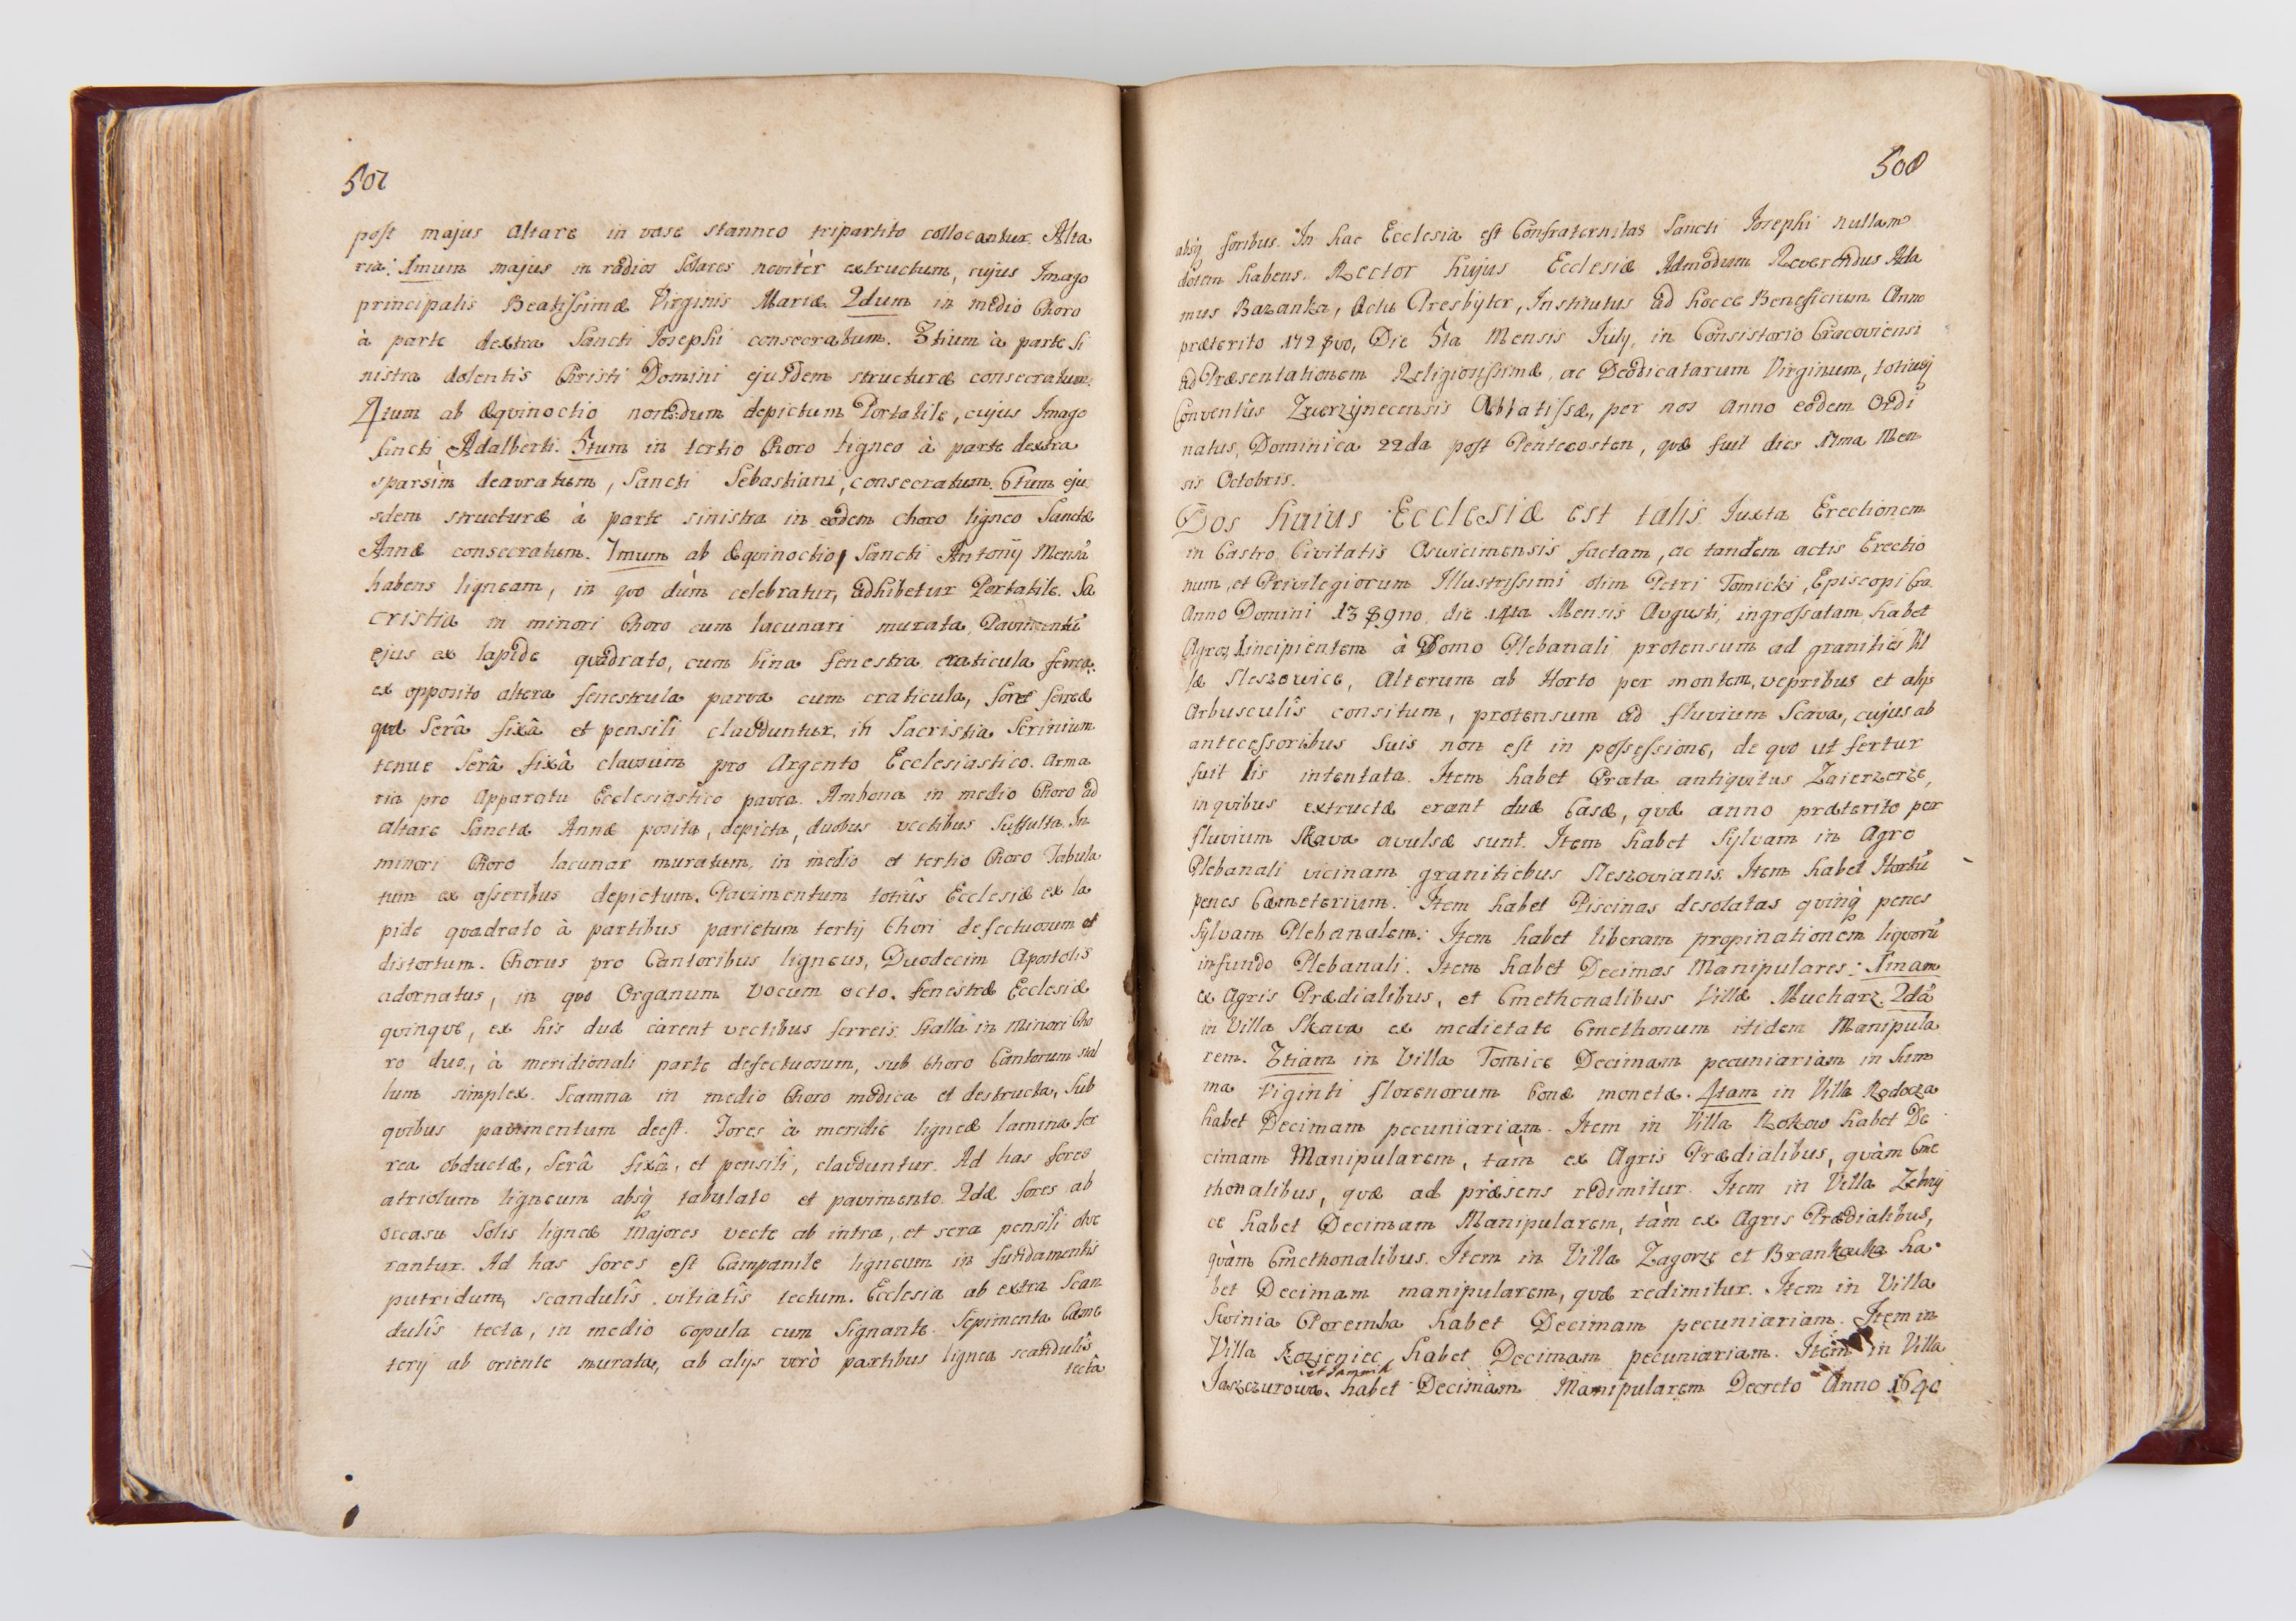 507
post majus altare in vase stanneo tripartito collocantur. Alta
ria: 1mum majus in radios solares novitèr extructum, cujus Imago
principalis Beatissimæ Virginis Mariæ. 2dum in medio Choro
à parte dextra Sancti Josephi consecratum. 3tium à parte si
nistra dolentis Christi Domini ejusdem structuræ consecratum.
4tum ab æqvinoctio depictum Portatile, cujus Imago
Sancti Adalberti. 5tum in tertio Choro ligneo à parte dextra
sparsim deauratum, Sancti Sebastiani, consecratum. 6tum eju
sdem structuræ à parte sinistra in eodem choro ligneo Sanctæ
Annæ consecratum. 7mum ab æqvinoctio Sancti Antonij Mensã
habens ligneam, in qvo dùm celebratur, adhibetur Portatile. Sa
cristia in minori Choro cum lacunari murata, Pavimentũ
ejus ex lapide qvadrato, cum bina fenestra craticula ferrea
ex opposito altera fenestrula parva cum craticula, fores ferreæ
qvæ serâ fixâ et pensilî claudduntur, in Sacristia Scrinium
tenue serâ fixâ clausum pro Argento Ecclesiastico. Arma
ria pro Apparatu Ecclesiastico parva. Ambona in medio Choro ad
altare Sanctæ Annæ posita, depicta, duobus vectibus suffulta. In
minori Choro lacunar muratum, in medio et tertio Choro Tabula
tum ex asseribus depictum. Pavimentum totiûs Ecclesiæ ex la
pide qvadrato à partibus parietum tertij Chori defectuosum et
distortum. Chorus pro Cantoribus ligneus, Duodecim Apostolis
adornatus, in qvo Organum vocum octo. Fenestræ Ecclesiæ
qvinqve, ex his duæ carent vectibus ferreis. Stalla in Minori Cho
ro duo, à meridionali parte defectuosum, sub Choro Cantorum stal
lum simplex. Scamna in medio Choro modica et destructa, sub
qvibus pavimentum deest. Fores à meridie ligneæ lamina fer
rea obductæ, serâ fixâ, et pensilî, claudduntur. Ad has fores
atriolum ligneum absq tabulato et pavimento. 2dæ fores ab
occasu Solis ligneæ majores vecte ab intra, et sera pensilî obse
rantur. Ad has fores est Campanile ligneum in fundamentis
putridum, scandulîs vitiatîs tectum. Ecclesia ab extra scan
dulîs tecta, in medio copula cum signante. Sepimenta Cæme
terij ab oriente murata, ab alijs verò partibus lignea scandulîs
tectâ
508
absq foribus. In hac Ecclesia est Confraternitas Sancti Josephi nullam
dotem habens. Rector hujus Ecclesiæ Admodum Reverendus Ada
mus Bazanka, Actu Presbyter, Institutus ad hocce Beneficium Anno
præterito 1728vo, Die 5ta Mensis July, in Consistorio Cracoviensi
ad Præsentationem Religiosissimæ, ac Deodicatarum Virginum, totiusq
Conventûs Zwerzynecensis Abbatissæ, per nos Anno eodem Ordi
natus, Dominica 22da post Pentecosten, qvæ fuit dies 17ma Men
sis Octobris.
Dos huius Ecclesiæ est talis Juxta Erectionem
in Castro Civitatis Oswicimensis factam, ac tandem actis Erectio
num, et Privilegiorum Illustrissimi olim Petri Tomicki, Episcopi Cra
Anno Domini 1389no, die 14ta Mensis Augusti, ingrossatam, habet
Agros 1incipientem à Domo Plebanali protensum ad granities Vil
læ Sleszowice, Alterum ab Horto per montem, vepribus et alijs
Arbusculîs consitum, protensum ad fluvium Scava, cujus ab
antecessoribus suis non est in possessione, de qvo ut fertur
fuit lis intentata. Item habet Prata antiqvitus Zaierzerze,
in qvibus extructæ erant duæ Casæ, qvæ anno præterito per
fluvium Skava avulsæ sunt. Item habet Sylvam in Agro
Plebanali vicinam granitiebus Sleszovianis. Item habet Hortũ
penes Cæmeterium. Item habet Piscinas desolatas qvinq penes
Sylvam Plebanalem. Item habet liberam propinationem liqvorũ
in fundo Plebanali. Item habet Decimas Manipulares: 1mam
ex Agris Prædialibus, et Cmethonalibus Villæ Mucharz. 2dã
in Villa Skava ex medietate Cmethonum itidem Manipula
rem. 3tiam in Villa Tomice Decimam pecuniariam in sum
ma viginti florenorum bonæ monetæ. 4tam in Villa Rodocza
habet Decimam pecuniariam. Item in Villa Rokow habet De
cimam Manipularem, tàm ex Agris Prædialibus, qvàm Cme
thonalibus, qvæ ad præsens redimitur. Item in Villa Zebrzy
ce habet Decimam Manipularem, tàm ex Agris Prædialibus,
qvàm Cmethonalibus. Item in Villa Zagorze et Brankowka ha
bet Decimam manipularem, qvæ redimitur. Item in Villa
Swinia Poremba habet Decimam pecuniariam. Item in
Villa Kozieniec habet Decimam pecuniariam. Item in Villa
Jaszczurowa habet Decimam Manipularem Decreto Anno 1640